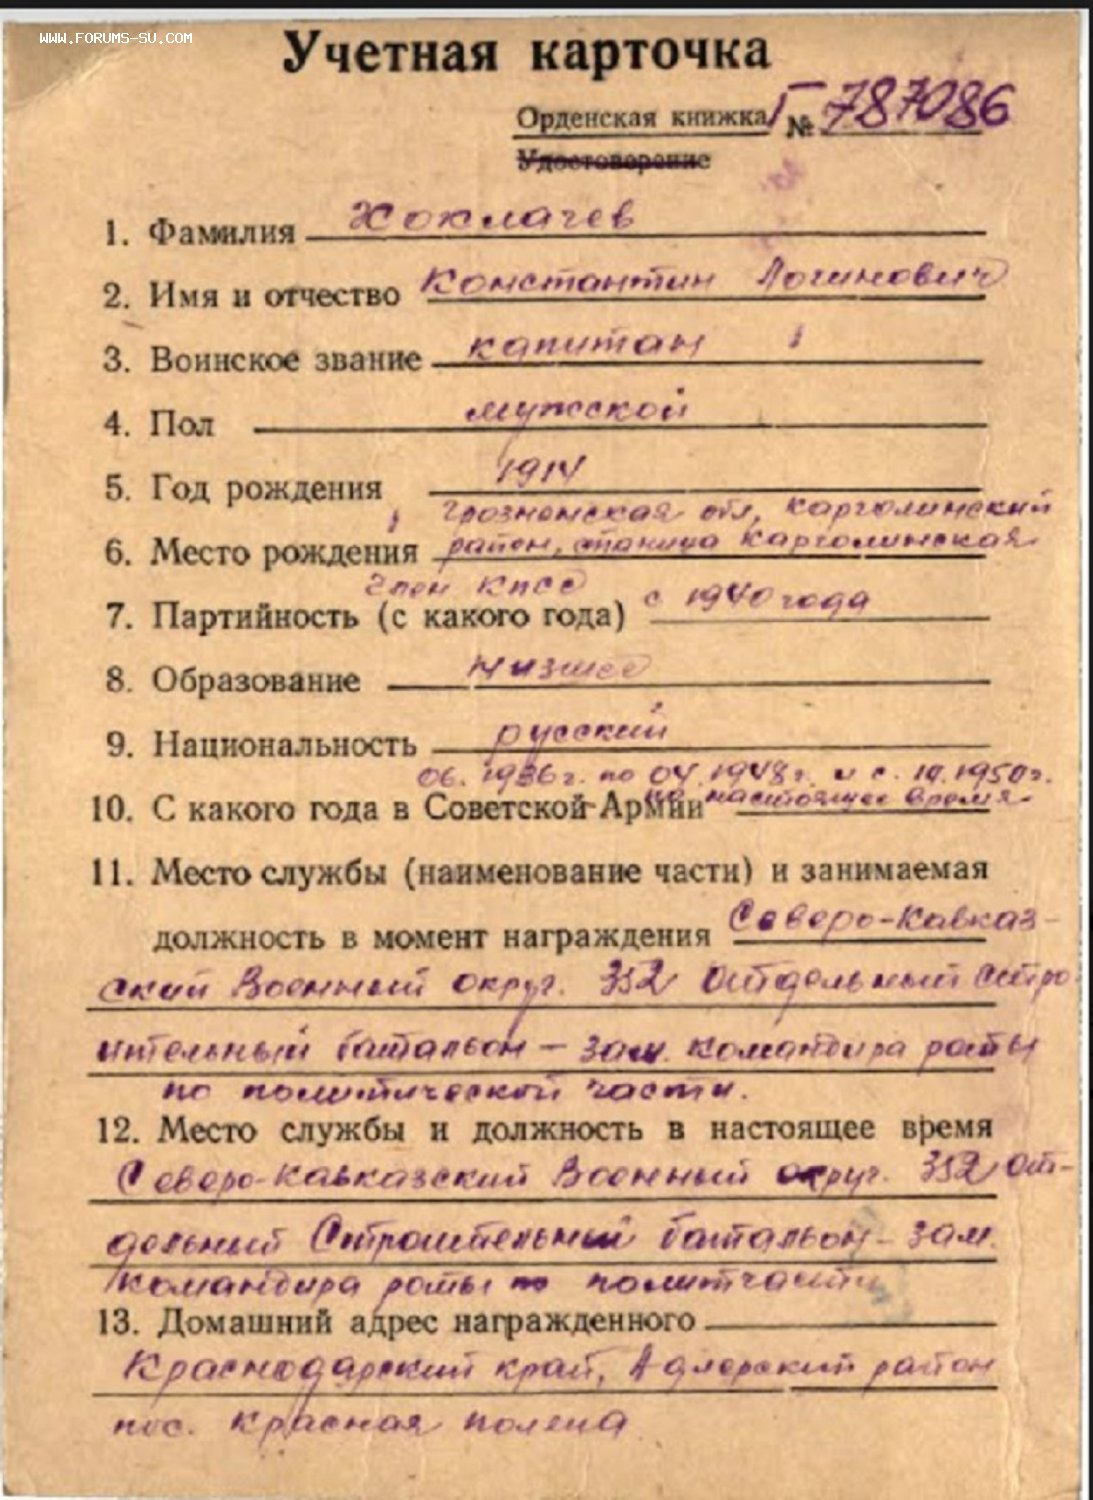 WWW.FORUMS-SU.COM
Учетная карточка
Орденская книжка Г № 787086
Удостоверение
1. Фамилия Хохлачев
2. Имя и отчество Константин Логинович
3. Воинское звание капитан
4. Пол мужской
5. Год рождения 1914
Грозненская обл, Каргалинский
6. Место рождения район, станица Каргалинская
член КПСС
7. Партийность (с какого года) с 1940 года
8. Образование низшее
9. Национальность русский
06. 1936 г. по 04. 1948 г. и с. 10. 1950 г.
10. С какого года в Советской Армии по настоящее время
11. Место службы (наименование части) и занимаемая
должность в момент награждения Северо-Кавказ-
ский Военный округ. 352 Отдельный Стро-
ительный батальон – зам. командира роты
по политической части.
12. Место службы и должность в настоящее время
Северо-Кавказский Военный округ. 352 От-
дельный Строительный батальон – зам.
командира роты по политчасти
13. Домашний адрес награжденного
Краснодарский край, Адлерский район
пос. Красная поляна